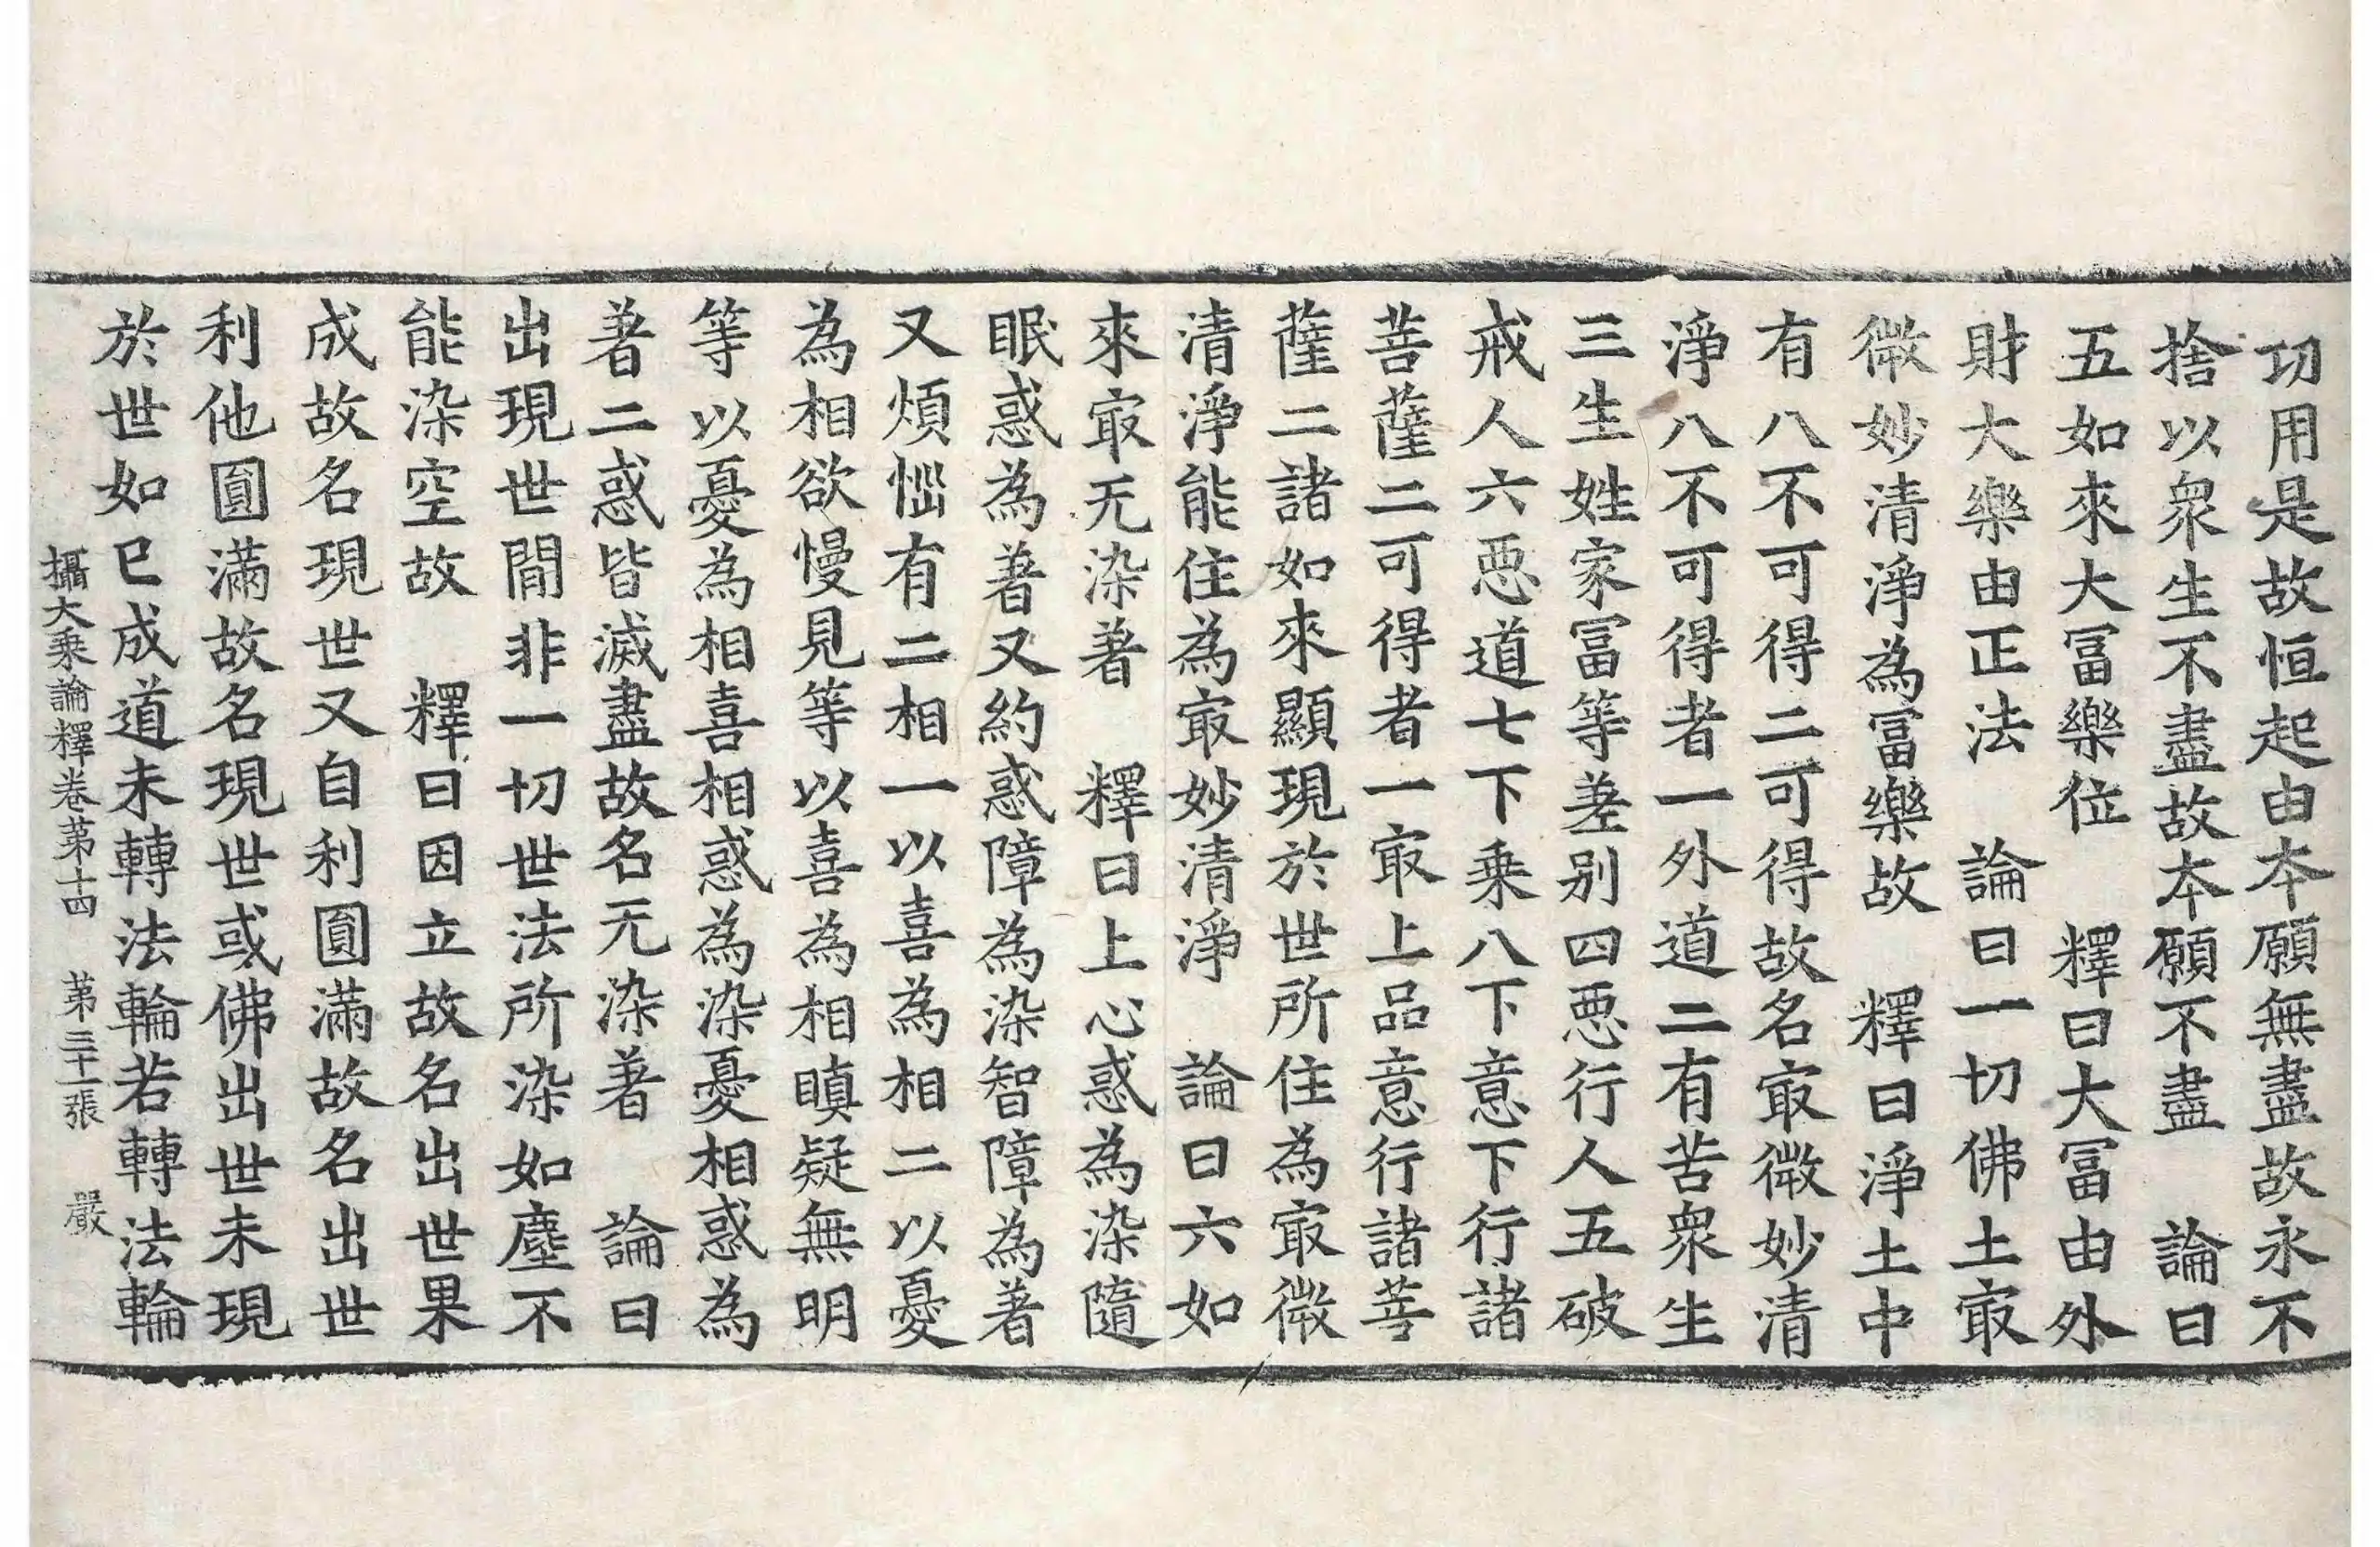 功用是故恒起由夲願無盡故永不
捨以衆生不盡故夲願不盡　論曰
五如來大冨樂位　釋曰大冨由外
財大樂由正法　論曰一切佛土冣
微妙清淨為冨樂故　釋曰淨土中
有八不可得二可得故名冣微妙清
淨八不可得者一外道二有苦衆生
三生姓家冨等差别四惡行人五破
戒人六惡道七下乗八下意下行諸
菩薩二可得者一冣上品意行諸菩
薩二諸如來顯現於世所住為冣微
清淨能住為冣妙清淨　論曰六如
來冣无染著　釋曰上心惑為染隨
眠惑為著又約惑障為染智障為著
又煩惱有二相一以喜為相二以憂
為相欲慢見等以喜為相瞋疑無明
等以憂為相喜相惑為染憂相惑為
著二惑皆滅盡故名无染著　論曰
出現世間非一切世法所染如塵不
能染空故　釋曰因立故名出世果
成故名現世又自利圓滿故名出世
利他圓滿故名現世或佛出世未現
於世如已成道未轉法輪若轉法輪
攝大乗論釋卷第十四　第三十一張　嚴